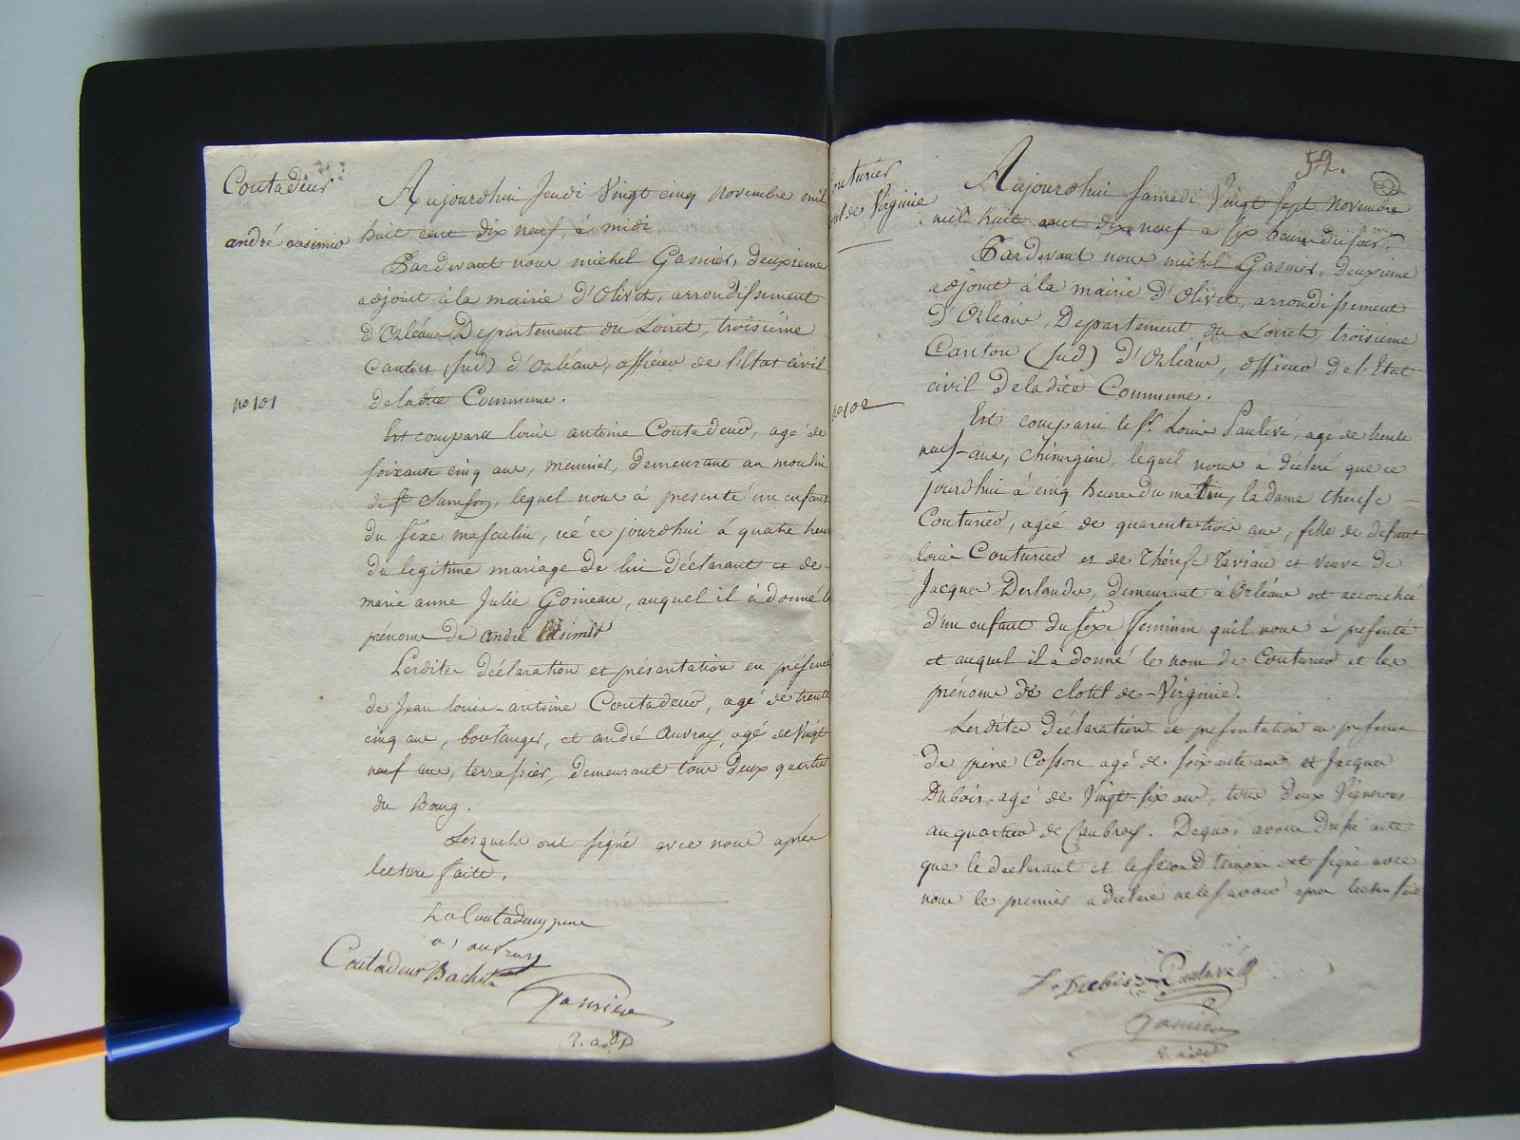 Coutadeur
andré casimir
no 101
Aujourdhui Jeudi Vingt cinq Novembre mil
huit cent dix neuf, à midi
Pardevant nous michel Gasnier, deuxieme
adjoint à la mairie d'Olivet, arrondissement
d'Orléans Departement du Loiret, troisième
Canton (sud) d'Orléans, officier de l'Etat civil
deladite Commune.
Est comparu louis antoine Coutadeur, agé de
soixante cinq ans, meunier, demeurant au moulin
de St Samson, lequel nous à presenté un enfant
du séxe masculin, né ce jourdhui à quatre heures
du legitime mariage de lui déclarant et de
marie anne Julie Goineau, auquel il à donné les
prénoms de andré casimir
Lesdites déclaration et présentation en présence
de Jean louis antoine Coutadeur, agé de trente
cinq ans, boulanger, et andré Auvray, agé de Vingt
neuf ans, terrassier, demeurant tous deux quartier
du Bourg.
Lesquels ont signé avec nous après
lecture faite.
La Coutadeur jeune
a, auvray
Coutadeur Bachet
Gasnier
2. adj
52.
Couturier
clotilde Virginie
no 102
Aujourdhui Samedi Vingt sept Novembre
mil huit cent dix neuf a six heures du soir.
Pardevant nous michel Gasnier, deuxieme
adjoint à la mairie d'Olivet, arrondissement
d'Orléans, Departement du Loiret, troisieme
Canton (sud) d'Orléans, officier de l'Etat
civil deladite Commune.
Est comparu le Sr. Louis Paulevé, agé de trente
neuf ans, chirurgien, lequel nous à déclaré que ce
jourdhui à cinq heures du matin, la dame therese
Couturier, agée de quarente trois ans, fille de defunt
louis Couturier et de Thérése et veuve de
Jacques Deslandes, demeurant à Orléans est accouchée
d'un enfant du séxe feminin qu'il nous à presenté
et auquel il à donné le nom de Couturier et les
prénoms de clotilde Virginie.
Lesdites déclaration et presentation en presence
de Cosson agé de soixante ans et Jacques
Dubois agé de Vingt six ans, tous deux Vignerons
au quartier de Caubray. Dequoi avons dressé acte
que le declarant et le second temoin ont signé avec
nous le premier a declaré ne le savoir apres lecture faite
J. Dubois Paulevé
Gasnier
2. adj